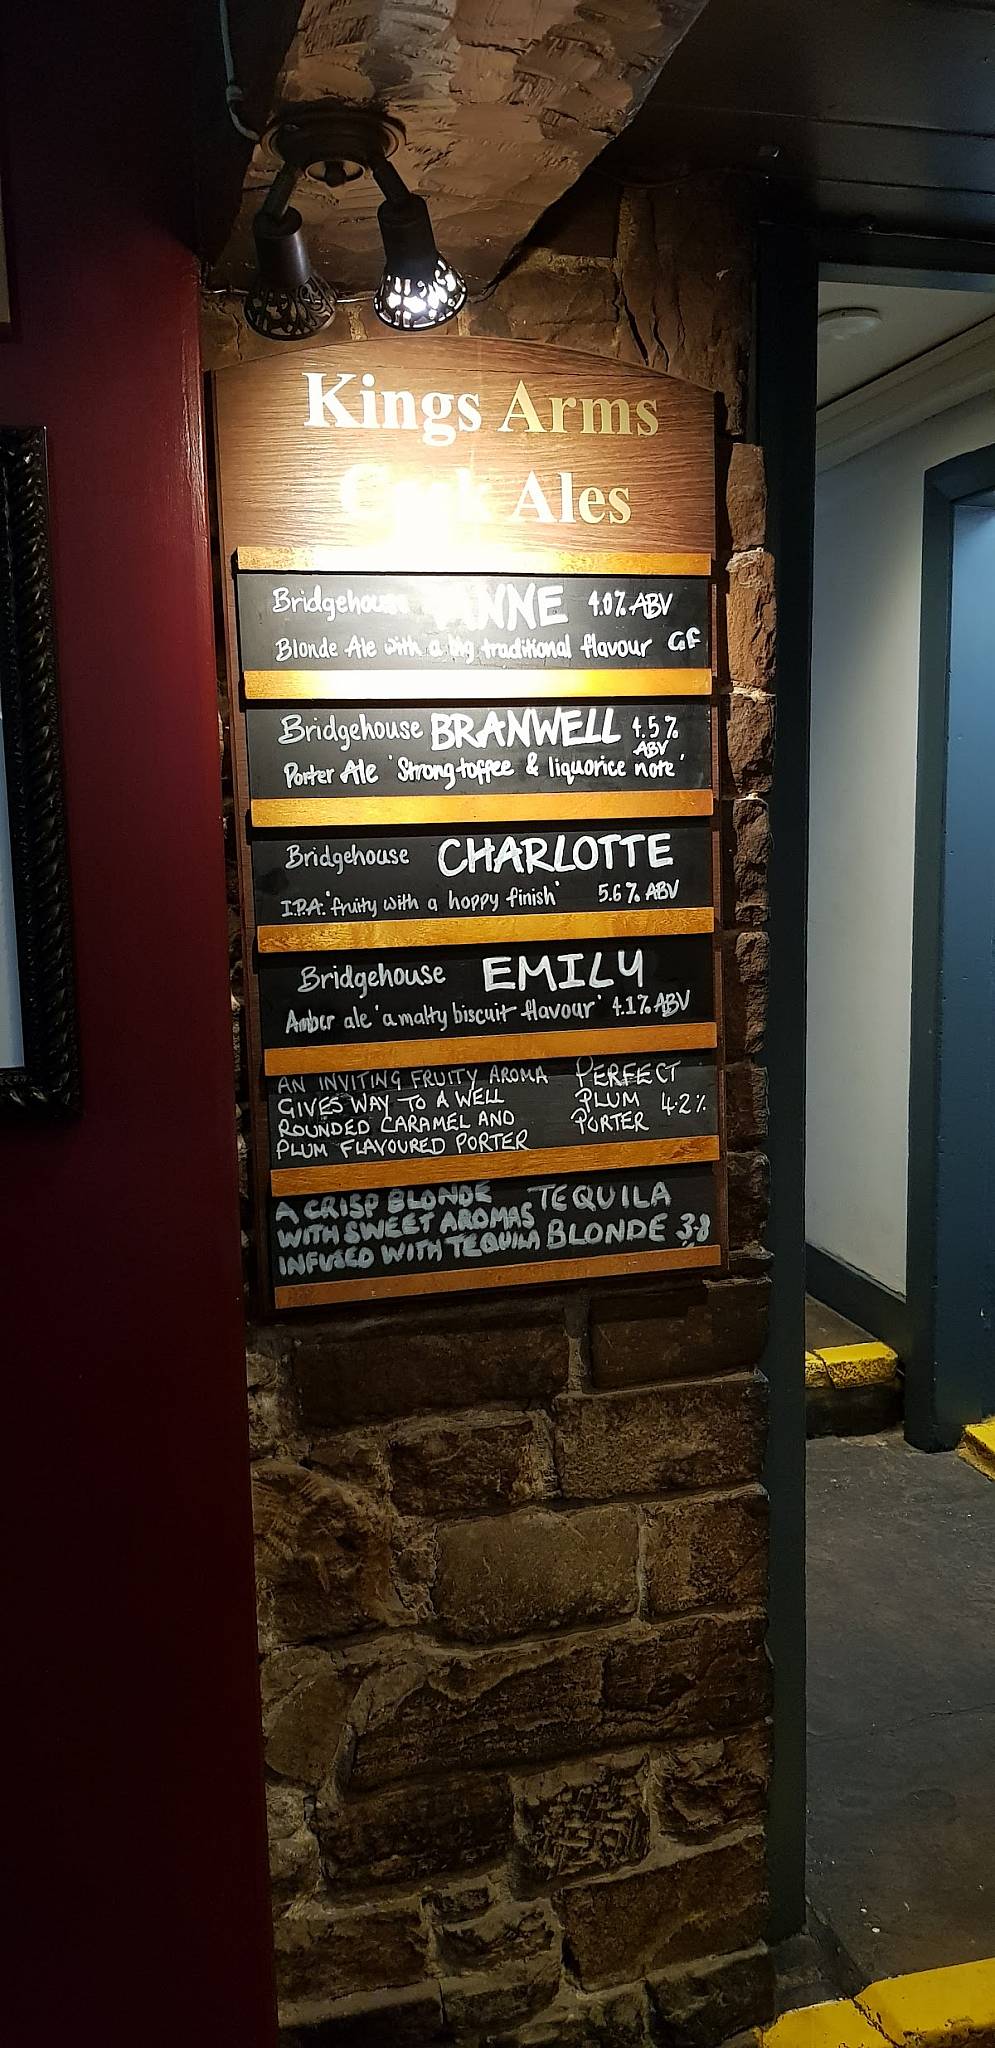 Kings Arms
Ales
Bridgehouse ANNE 4.0% ABV
Blonde Ale with a big traditional flavour GF
Bridgehouse BRANWELL 4.5%
ABV
Porter Ale 'Strong toffee & liquorice note'
Bridgehouse CHARLOTTE
I.P.A. 'fruity with a hoppy finish' 5.6% ABV
Bridgehouse EMILY
Amber ale 'a malty biscuit flavour' 4.1% ABV
AN INVITING FRUITY AROMA
GIVES WAY TO A WELL
ROUNDED CARAMEL AND
PLUM FLAVOURED PORTER
PERFECT
PLUM 4.2%
PORTER
A CRISP BLONDE
WITH SWEET AROMAS
INFUSED WITH TEQUILA
TEQUILA
BLONDE 3.8